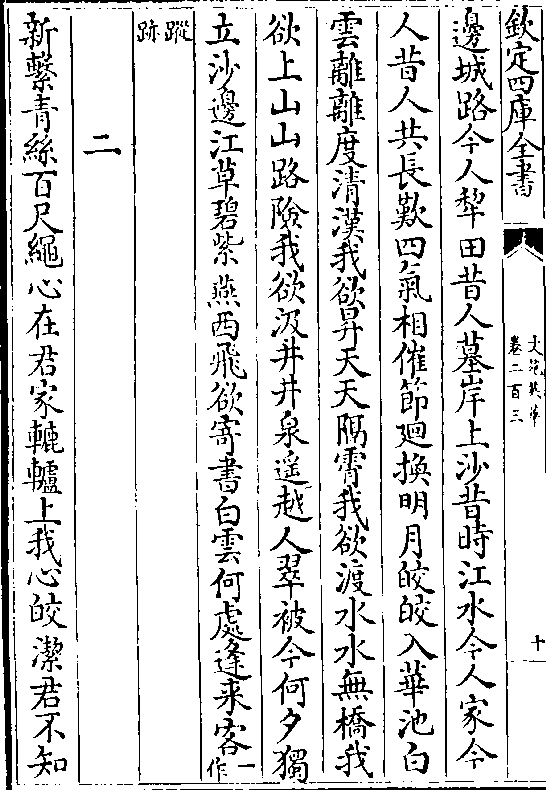 欽定四庫全書
文苑英華
卷二百三
十
邊城路今人犂田昔人墓岸上沙昔時江水今人家今
人昔人共長歎四氣相催節廻換明月皎皎入華池白
雲離離度清漢我欲昇天天隔霄我欲渡水水無橋我
欲上山山路險我欲汲井井泉遥越人翠被今何夕獨
立沙邊江草碧紫燕西飛欲寄書白雲何處逢来客一作
蹤跡
二
新繫青絲百尺繩心在君家轆轤上我心皎潔君不知